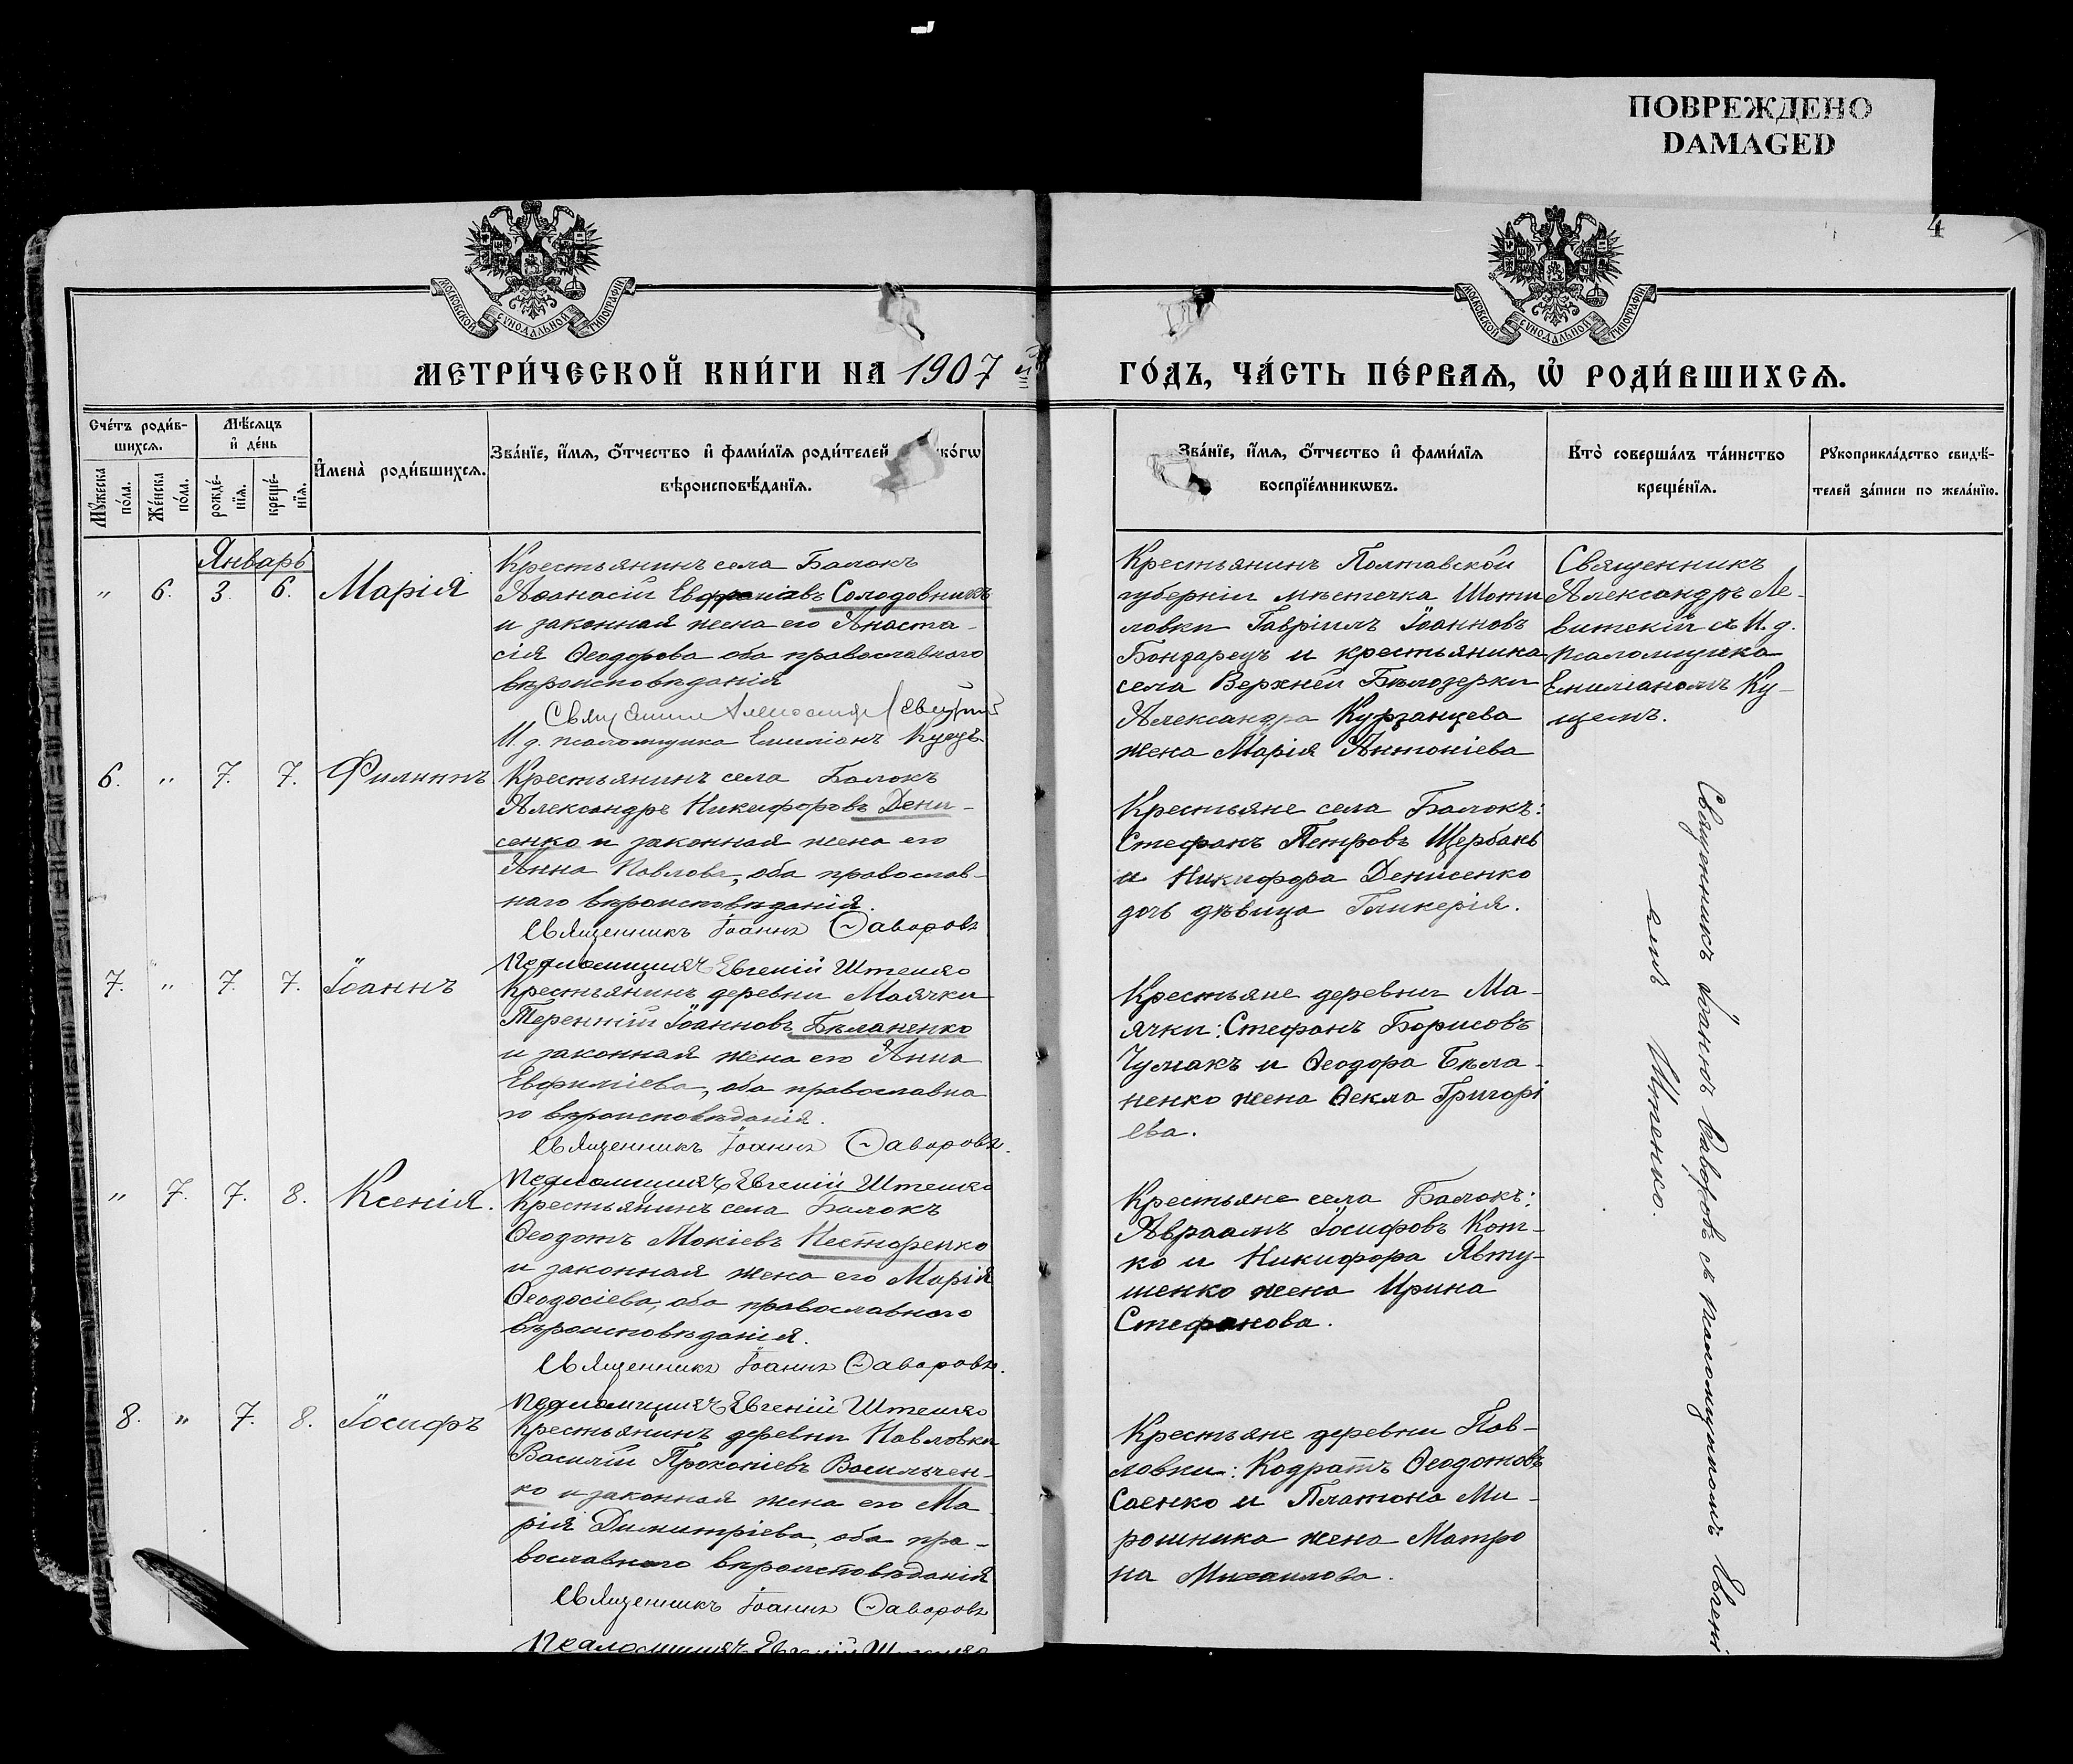 ПОВРЕЖДЕНО
DAMAGED
4
МОСКОВСКОЙ СѴНОДАЛЬНОЙ ТИПОГРАФІИ
МОСКОВСКОЙ СѴНОДАЛЬНОЙ ТИПОГРАФІИ
МЕТРИ́ЧЕСКОЙ КНИ́ГИ НА 1907 й
ГО́ДЪ, ЧА́СТЬ ПЕ́РВАѦ, Ѡ҆ РОДИ́ВШИХСѦ.
Сче́тъ роди́в-
шихсѧ.
Мꙋ́жеска по́ла.
Же́нска по́ла.
Мѣ́сѧцъ
и҆ де́нь
рожде́-
нїѧ.
креще́-
нїѧ.
И҆мена̀ роди́вшихсѧ.
Зва́нїе, и҆́мѧ, ѻ҆́тчество и҆ фами́лїѧ роди́телей
ко́гѡ
вѣроисповѣ́данїѧ.
Зва́нїе, и҆́мѧ, ѻ҆́тчество и҆ фами́лїѧ
воспрїе́мникѡвъ.
Кто̀ соверша́лъ та́инство
креще́нїѧ.
Рꙋкоприкла́дство свидѣ́-
телей за́писи по жела́нїю.
Январь
" 6. 3. 6. Марія
Крестьянинъ села Балокъ
Аѳанасій Солодовникъ
и законная жена его Анаста-
сія Ѳеодорова оба православнаго
вѣроисповѣданія
И. д. псаломщика Емиліанъ Куцъ
Крестьянинъ Полтавской
губерніи мѣстечка Шоти
ловки Гавріилъ Іоанновъ
Бондарецъ и крестьянина
села Верхней Бѣлозерки
Александра Курзанцева
жена Марія Антоніева
Священникъ
Александръ Ле-
витскій съ И. д.
псаломщика
Емиліаномъ Ку-
цемъ.
6. " 7. 7. Филиппъ
Крестьянинъ села Балокъ
Александръ Никифоровъ Дени-
сенко и законная жена его
Анна Павлова, оба православ-
наго вѣроисповѣданія.
Священникъ Іоаннъ Ѳаворовъ
Псаломщикъ Евгеній Штепенко
Крестьяне села Балокъ:
Стефанъ Петровъ Щербакъ
и Никифора Денисенко
дочь дѣвица Гликерія.
7. " 7. 7. Іоаннъ
Крестьянинъ деревни Маячки
Терентій Іоанновъ Бѣланенко
и законная жена его Анна
Евфиміева, оба православна
го вѣроисповѣданія.
Священникъ Іоаннъ Ѳаворовъ.
Псаломщикъ Евгеній Штепенко
Крестьяне деревни Ма-
ячки: Стефанъ Борисовъ
Чумакъ и Ѳеодора Бѣла-
ненко жена Ѳекла Григорі
ева.
" 7. 7. 8. Ксенія.
Крестьянинъ села Балокъ
Ѳеодотъ Мокіевъ Нестеренко
и законная жена его Марія
Ѳеодосіева, оба православнаго
вѣроисповѣданія.
Священникъ Іоаннъ Ѳаворовъ.
Псаломщикъ Евгеній Штепенко
Крестьяне села Балокъ:
Авраамъ Іосифовъ Кот-
ко и Никифора Явту-
шенко жена Ирина
Стефанова.
8. " 7. 8. Іосифъ
Крестьянинъ деревни Павловки
Василій Прокопіевъ Васильчен-
ко и законная жена его Ма
рія Димитріева, оба пра-
вославнаго вѣроисповѣданія
Священникъ Іоаннъ Ѳаворовъ
Псаломщикъ Евгеній Штепенко
Крестьяне деревни Пав-
ловки: Кодратъ Ѳеодотовъ
Саенко и Платона Ми-
рошника жена Матро
на Михаилова.
Священникъ Іоаннъ Ѳаворовъ съ псаломщикомъ Евгені
емъ Штепенко.